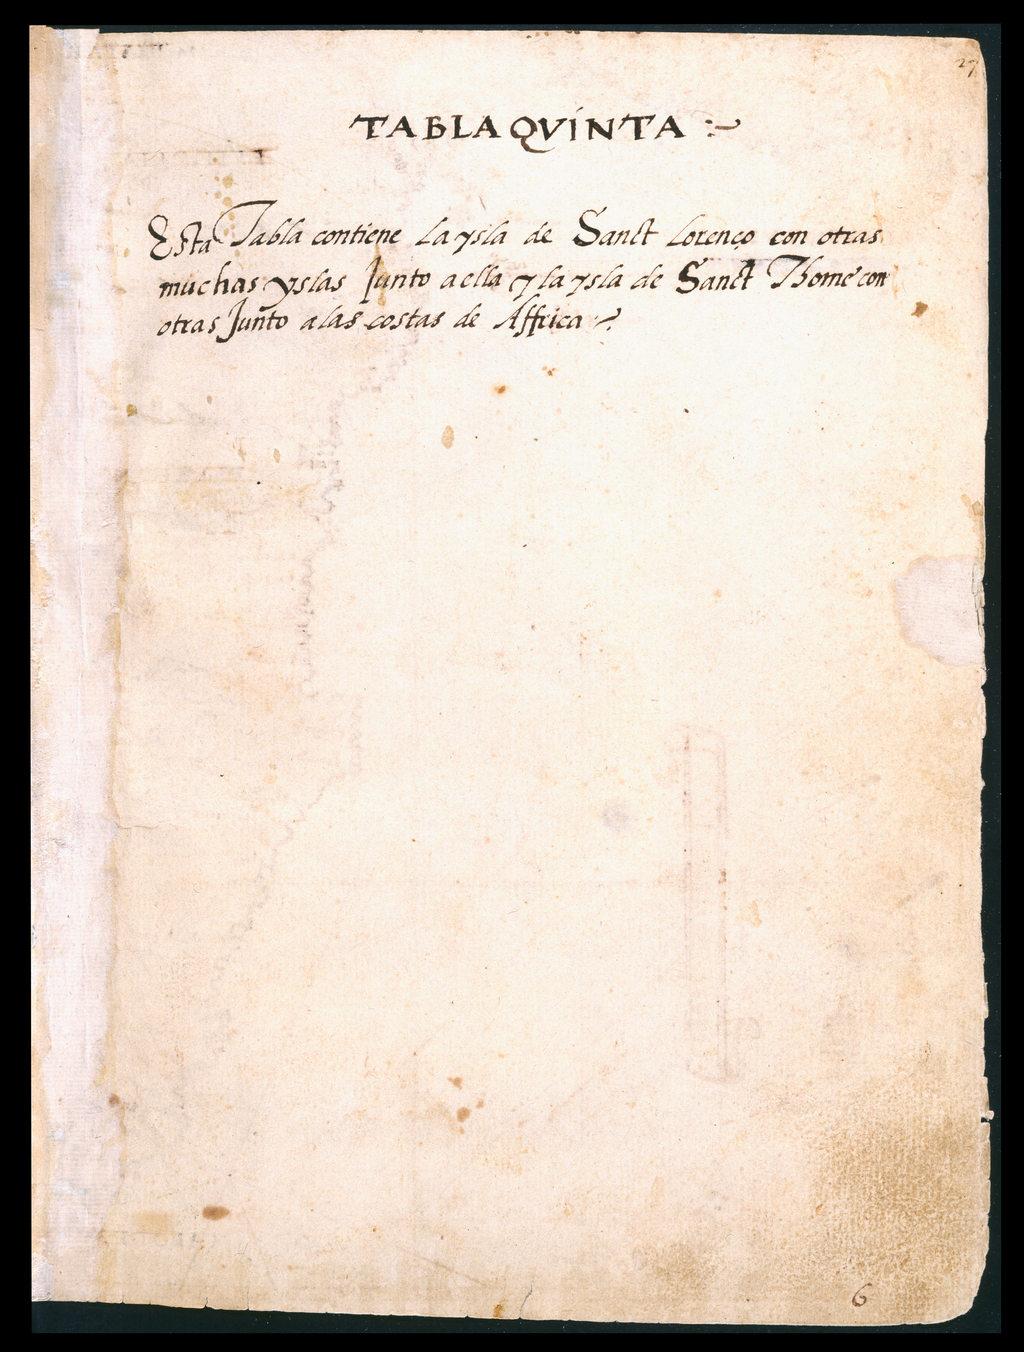 27
TABLA QVINTA
Esta Tabla contiene La ysla de Sanct Lorenço con otras
muchas yslas Junto a ella y la ysla de Sanct Thome con
otras Junto a las costas de Affrica
6